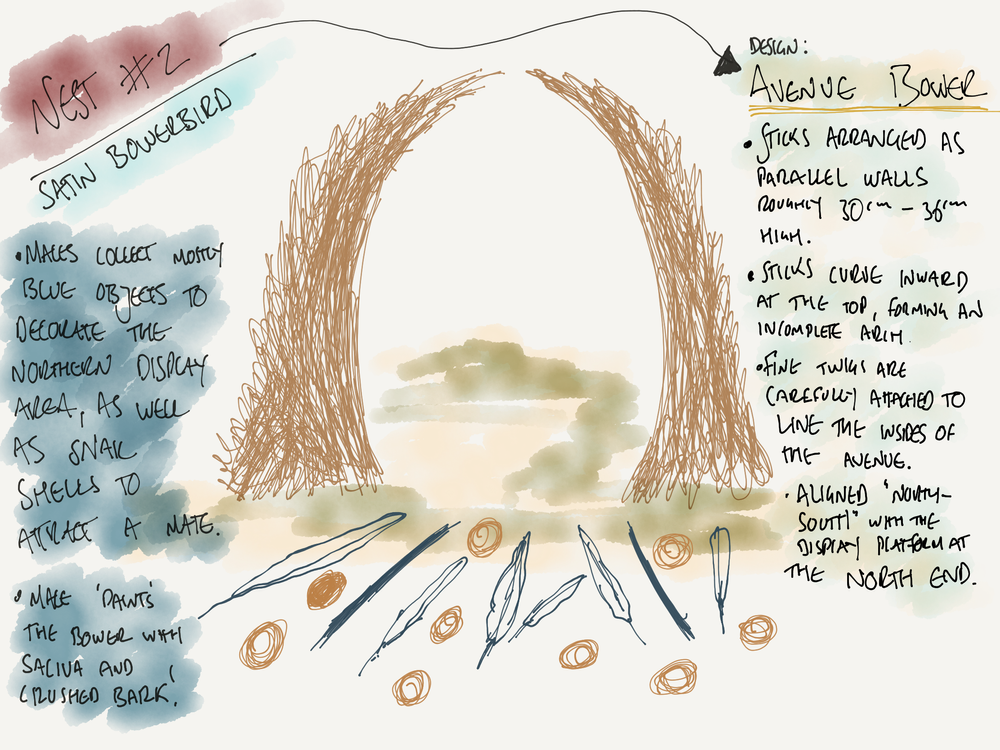 NEST #2
SATIN BOWERBIRD
• MALES COLLECT MOSTLY
BLUE OBJECTS TO
DECORATE THE
NORTHERN DISPLAY
AREA, AS WELL
AS SNAIL
SHELLS TO
ATTRACT A MATE.
• MALE 'PAINTS'
THE BOWER WITH
SALIVA AND
CRUSHED BARK.
DESIGN:
AVENUE BOWER
• STICKS ARRANGED AS
PARALLEL WALLS
ROUGHLY 30cm – 36cm
HIGH.
• STICKS CURVE INWARD
AT THE TOP, FORMING AN
INCOMPLETE ARCH.
• FINE TWIGS ARE
CAREFULLY ATTACHED TO
LINE THE INSIDES OF
THE AVENUE.
• ALIGNED "NORTH-
SOUTH" WITH THE
DISPLAY PLATFORM AT
THE NORTH END.